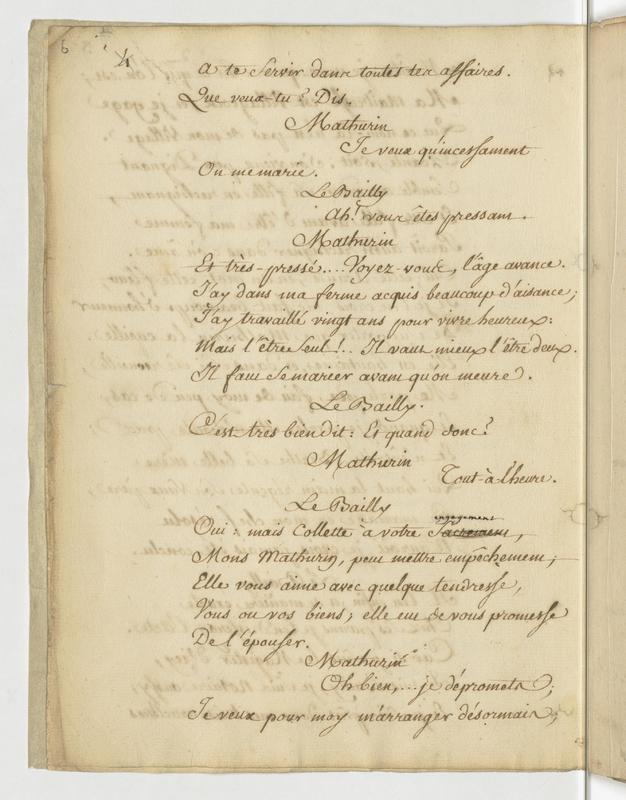 6
4
A te servir dans toutes tes affaires.
Que veux-tu? Dis.
Mathurin
Je veux qu'incessament
On me marie.
Le Bailly
Ah! vous êtes pressant.
Mathurin
Et très-pressé.... Voyez-vous, l'âge avance.
J'ay dans ma ferme acquis beaucoup d'aisance;
J'ay travaillé vingt ans pour vivre heureux:
Mais l'être seul!.. Il vaut mieux l'être deux.
Il faut se marier avant qu'on meure.
Le Bailly.
C'est très bien dit: Et quand donc?
Mathurin
Tout-à-l'heure.
Le Bailly
engagement
Oui: mais Collette à votre Sacrement,
Mons Mathurin, peut mettre empêchement;
Elle vous aime avec quelque tendresse,
Vous ou vos biens; elle eut de vous promesse
De l'épouser.
Mathurin
Oh bien,... je dépromets;
Je veux pour moy m'arranger désormais;